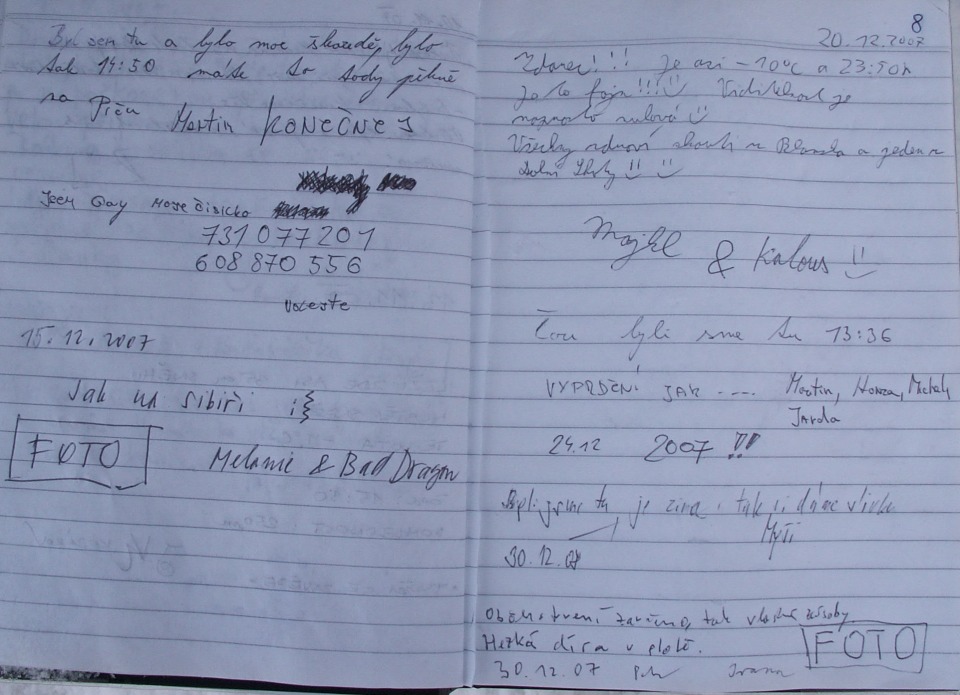 Byl sem tu a bylo moc škaredě, bylo
tak 14:50 máte to tady pěkně
na Piču Martin KONEČNEJ
Jsem Gay moje čisicko
731 077 201
608 870 556
15.12.2007
Jak na Sibiři
FOTO Melanie & Bad Dragon
8
20.12.2007
Zdarec!!! Je asi -10°C a 23:50h
Je to fajn!!! Viditelnost je
naprosto nulová
Všechny zdraví z Blanska a jeden z
Dolní Lhoty
Majkl & Kalous
Čau byli sme tu 13:36
VYPRDĚNÍ JAK ---- Martin, Honza, Michal,
Jarda
24.12 2007 !!
Byli jsme tu je zima tak si dáme
Myši
30.12.07
Občerstvení zavřeno, tak vlastní zásoby.
Hezká díra v plotě.
30.12.07 Ivana FOTO